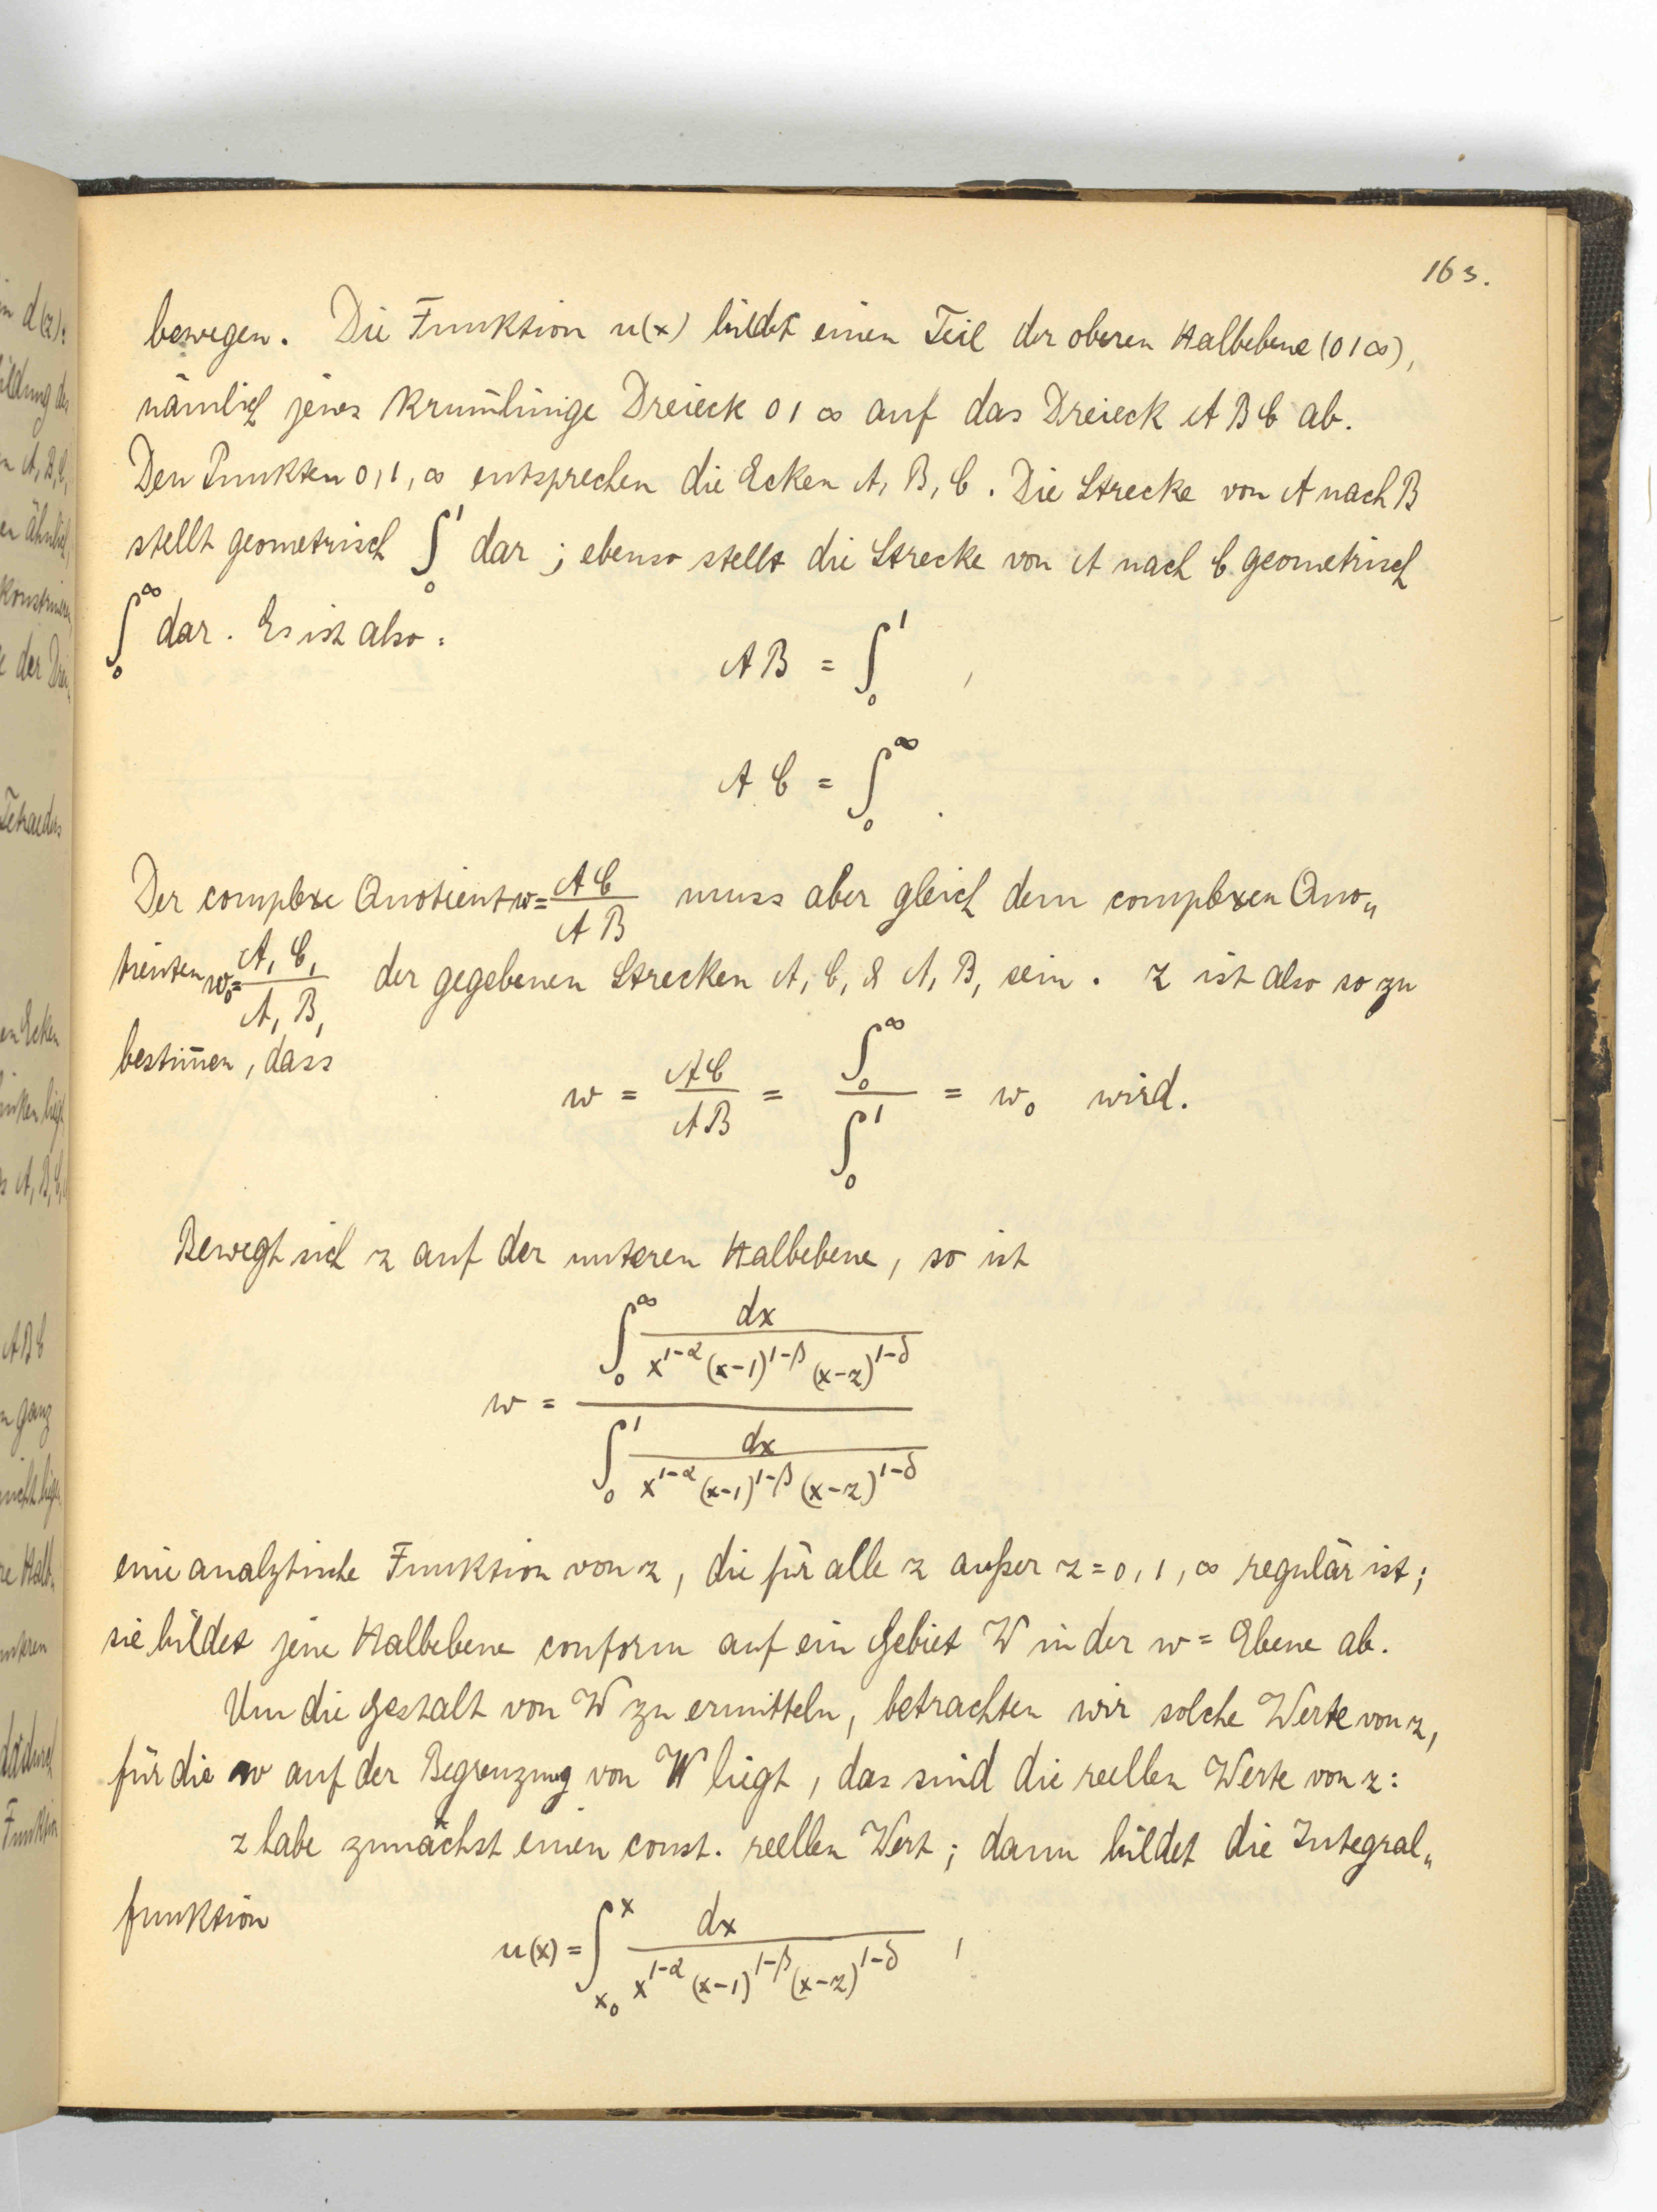 163.
bewegen. Die Funktion u(x) bildet einen Teil der oberen Halbebene (0 1 ∞),
nämlich jenes krummlinige Dreieck 0 1 ∞ auf das Dreieck A B C ab.
Den Punkten 0, 1, ∞ entsprechen die Ecken A, B, C. Die Strecke von A nach B
stellt geometrisch ∫₀¹ dar; ebenso stellt die Strecke von A nach C geometrisch
∫₀^∞ dar. Es ist also:
AB = ∫₀¹ ,
AC = ∫₀^∞ .
Der complexe Quotient w = AC/AB muss aber gleich dem complexen Quo„
tienten w₀ = A₁C₁/A₁B₁ der gegebenen Strecken A₁C₁ & A₁B₁ sein. z ist also so zu
bestim̅en, dass
w = AC/AB = ∫₀^∞ / ∫₀¹ = w₀ wird.
Bewegt sich z auf der unteren Halbebene, so ist
w = ∫₀^∞ dx/(x^{1-α}(x-1)^{1-β}(x-z)^{1-δ}) / ∫₀¹ dx/(x^{1-α}(x-1)^{1-β}(x-z)^{1-δ})
eine analytische Funktion von z, die für alle z außer z = 0, 1, ∞ regulär ist;
sie bildet jene Halbebene conform auf ein Gebiet W in der w = Ebene ab.
Um die Gestalt von W zu ermitteln, betrachten wir solche Werte von z,
für die w auf der Begrenzung von W liegt, das sind die reellen Werte von z:
z habe zunächst einen const. reellen Wert; dann bildet die Integral„
funktion
u(x) = ∫_{x₀}^{x} dx/(x^{1-α}(x-1)^{1-β}(x-z)^{1-δ}) ,